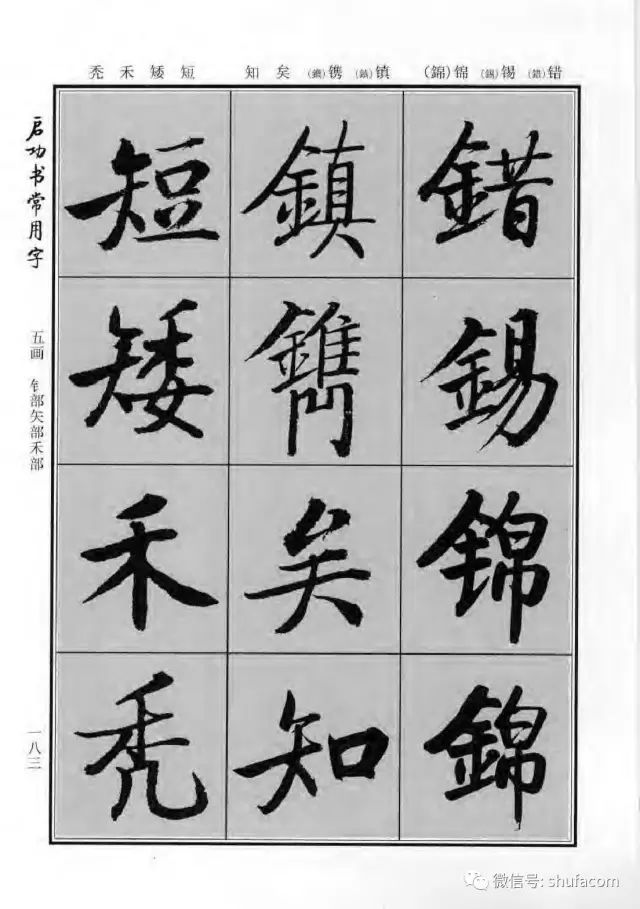 错(錯) 锡(錫) 锦(錦) 镇(鎮) 镌(鐫) 矣 知 短 矮 禾 秃
錯錫錦錦
鎮鐫矣知
短矮禾秃
启功书常用字
五画 钅部矢部禾部
一八三
微信号: shufacom